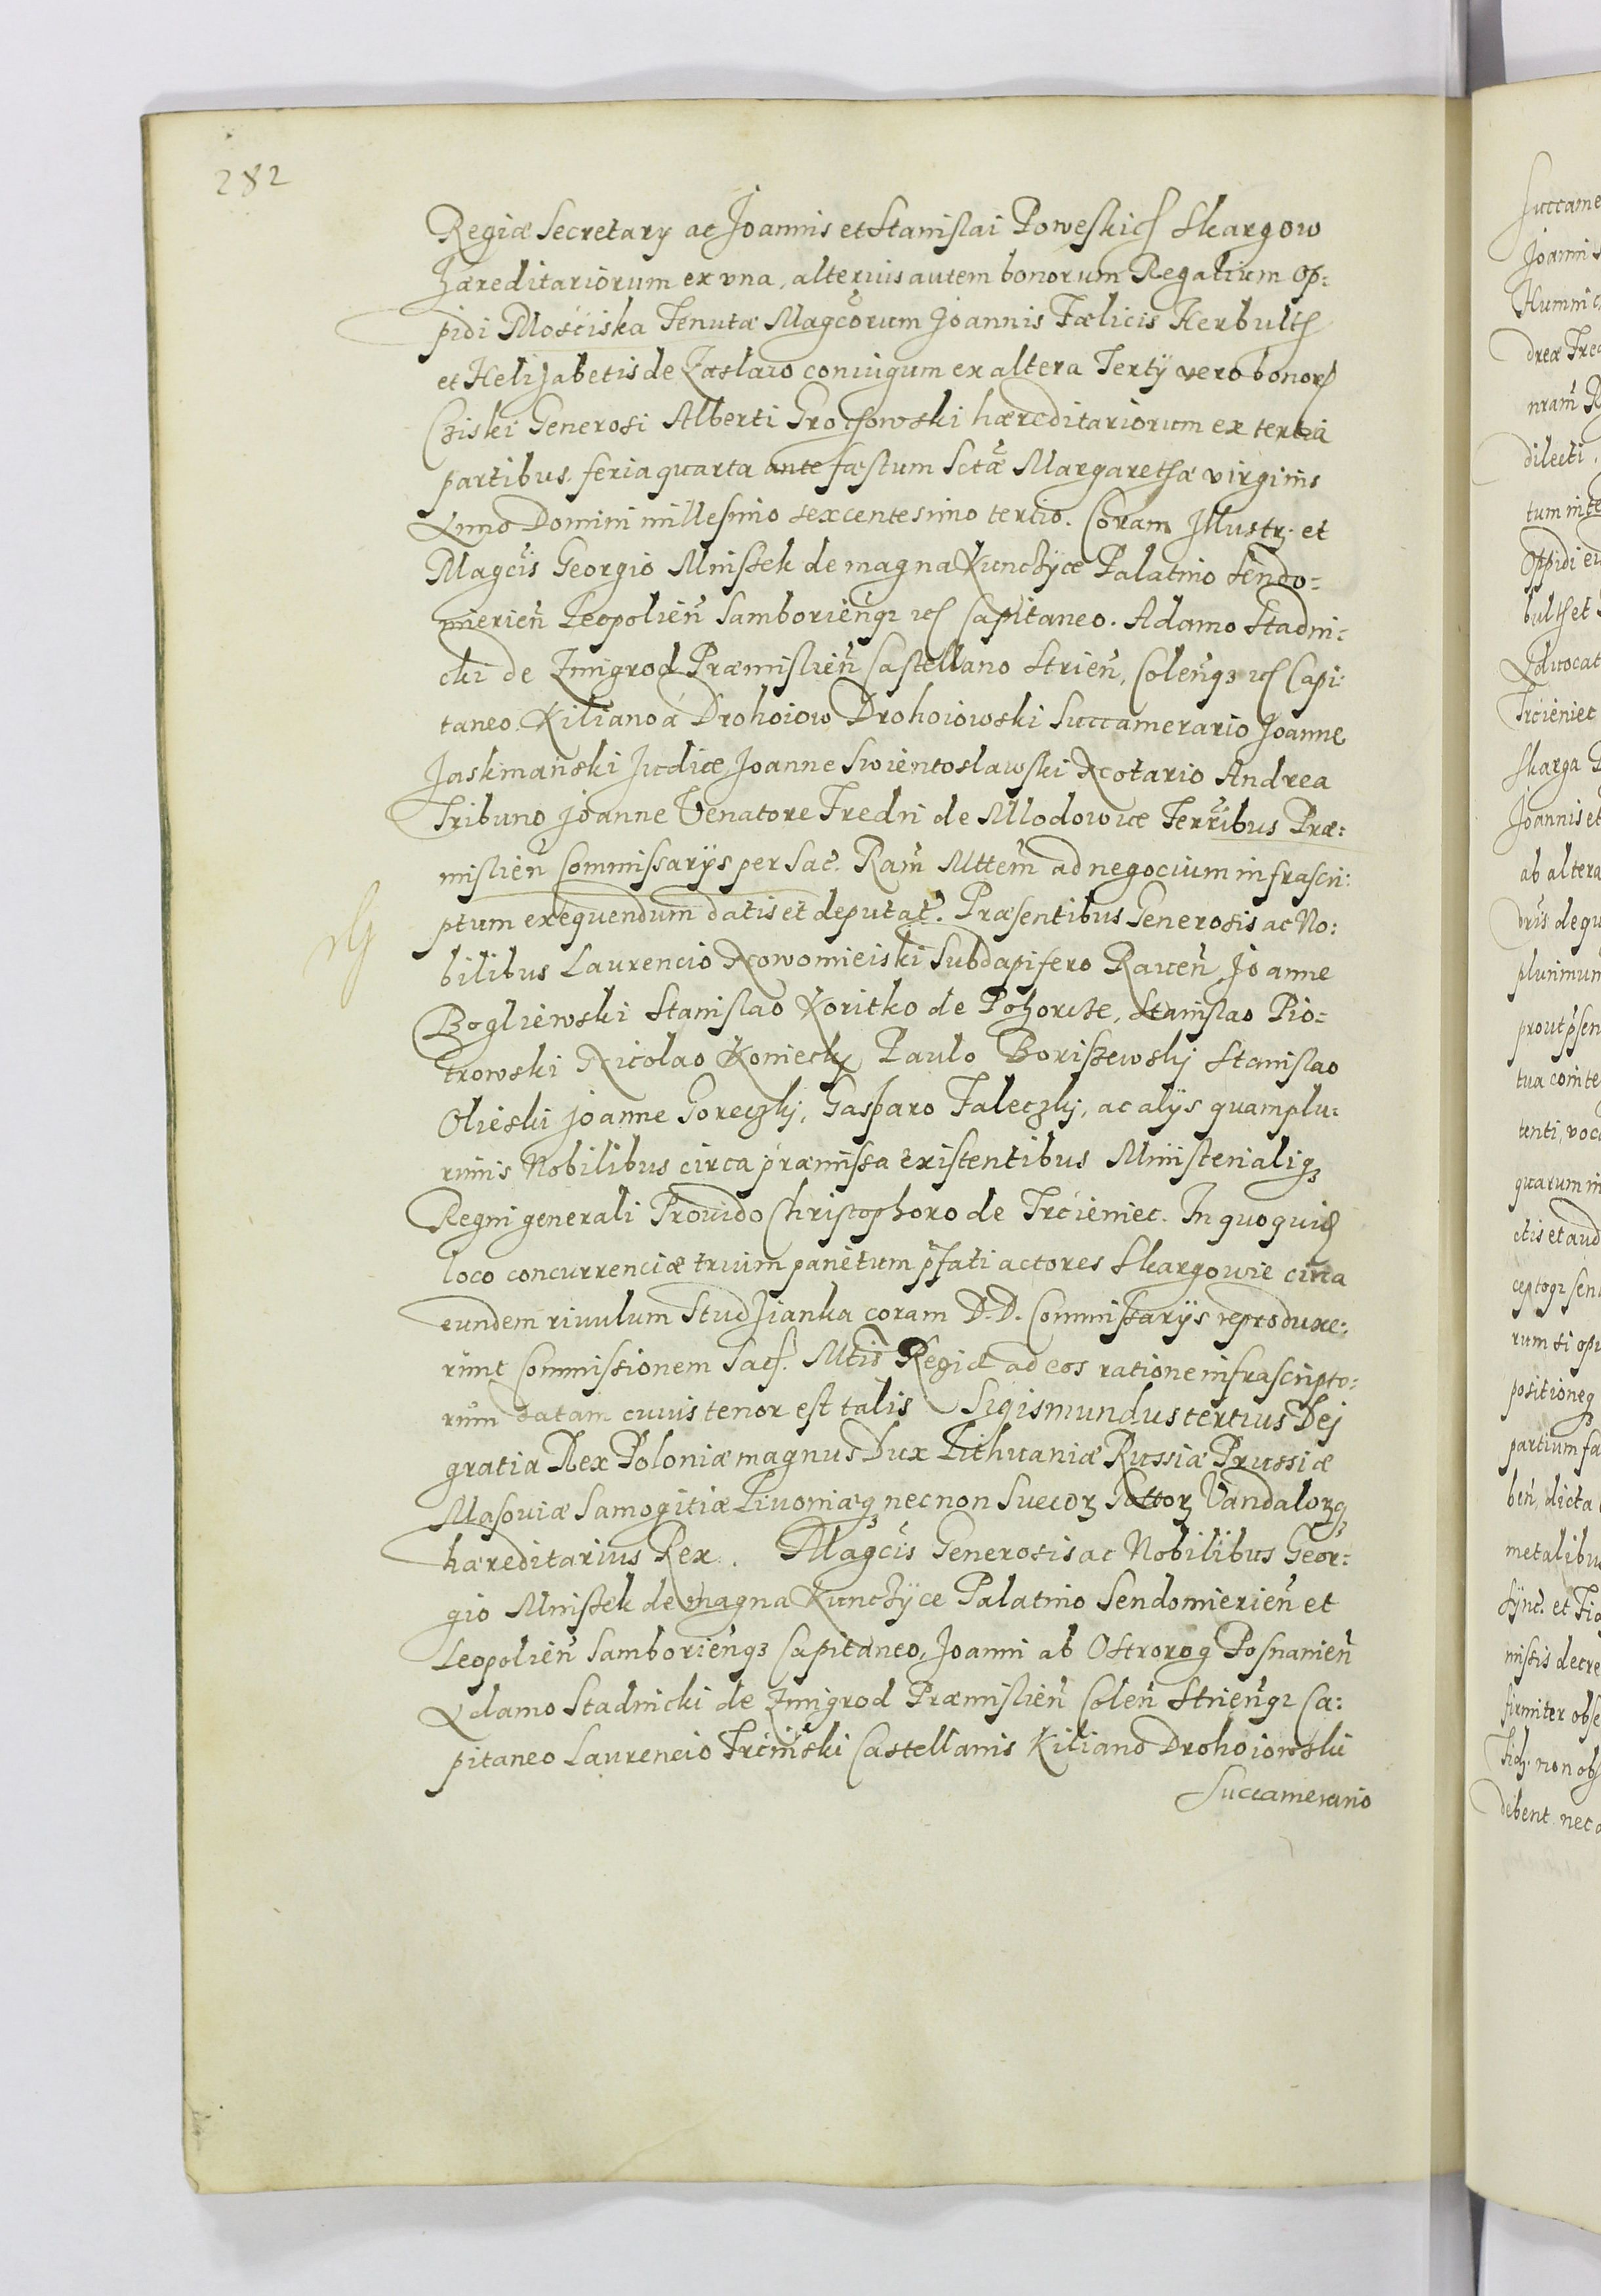 282
Regiæ Secretarÿ ac Joannis et Stanislai Poweskich Skargow
Hæreditariorum ex vna, alterius autem bonorum Regalium Op:
pidi Mościska Tenutæ Magcorum Joannis Fælicis Herbulth
et Helizabetis de Zaslaw coniugum ex altera Tertÿ vero bonor
Cziski Generosi Alberti Grochowski hæreditariorum ex tertia
partibus. feria quarta ante fæstum Sctæ Margarethæ virginis
Anno Domini millesimo sexcentesimo tertio. Coram Illustr. et
Magcis Georgio Mniszek de magna Kunczÿce Palatino Sendo=
mierien̄ Leopolien̄ Samborien̄qȝ etc Capitaneo. Adamo Stadni=
cki de Zmigrod Præmislien̄ Castellano Strien̄, Colen̄qȝ etc Capi:
taneo. Kiliano á Drohoiow Drohoiowski Succamerario Joanne
Jaskmański Judice, Joanne Swientoslawski Notario Andrea
Tribuno Joanne Venatore Fredri de Mlodowice Terribus Præ:
mislien̄ Commissarÿs per Sac. Ram̄ Mttem̄ ad negocium infrascri:
ptum exequendum datis et deputat. Præsentibus Generosis ac No:
bilibus Laurencio Nowomieiski Subdapifero Raven̄ Joanne
Bogliewski Stanislao Koritko de Pohorcze, Stanislao Pio=
trowski Nicolao Koniecky Paulo Boriszewskj Stanislao
Olieski Joanne Goreczkj, Gasparo Faleczkj, ac alÿs quamplu:
rimis Nobilibus circa præmissa existentibus Ministerialiqȝ
Regni generali Prouido Christophoro de Trcieniec. In quoquid
loco concurrenciæ trium parietum pfati actores Skargowie circa
eundem riuulum Studzianka coram D.D. Commissarÿs reproduxe:
runt Commissionem Sac. Mtis Regiæ ad eos ratione infrascripto:
rum datam cuius tenor est talis Sigismundus tertius Dej
gratia Rex Poloniæ magnus Dux Lithuaniæ Russiæ Prussiæ
Masouiæ Samogitiæ Livoniæqȝ necnon Suecoꝝ Gottoꝝ Vandaloꝝqȝ
hæreditarius Rex. Magcis Generosis ac Nobilibus Geor:
gio Mniszek de magna Kunczÿce Palatino Sendomierien̄ et
Leopolien̄ Samborien̄qȝ Capitaneo, Joanni ab Ostrorog Posnanien̄
Adamo Stadnicki de Zmigrod Præmislien̄ Colen̄ Strien̄qȝ Ca:
pitaneo Laurencio Trcinski Castellanis Kiliano Drohoiowski
Succamerario